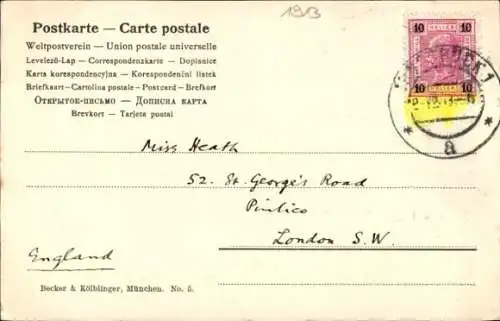 1913
Postkarte — Carte postale
Weltpostverein — Union postale universelle
Levelező-Lap — Correspondenzkarte — Dopisnice
Karta korespondencyjna — Korespondenční lístek
Briefkaart — Cartolina postale — Postcard — Brefkort
Открытое-письмо — Дописна карта
Brevkort — Tarjeta postal
10 10
10 10
a
Miss Heath
52. St. George's Road
Pimlico
London S.W.
England
Becker & Kölblinger, München. No. 5.